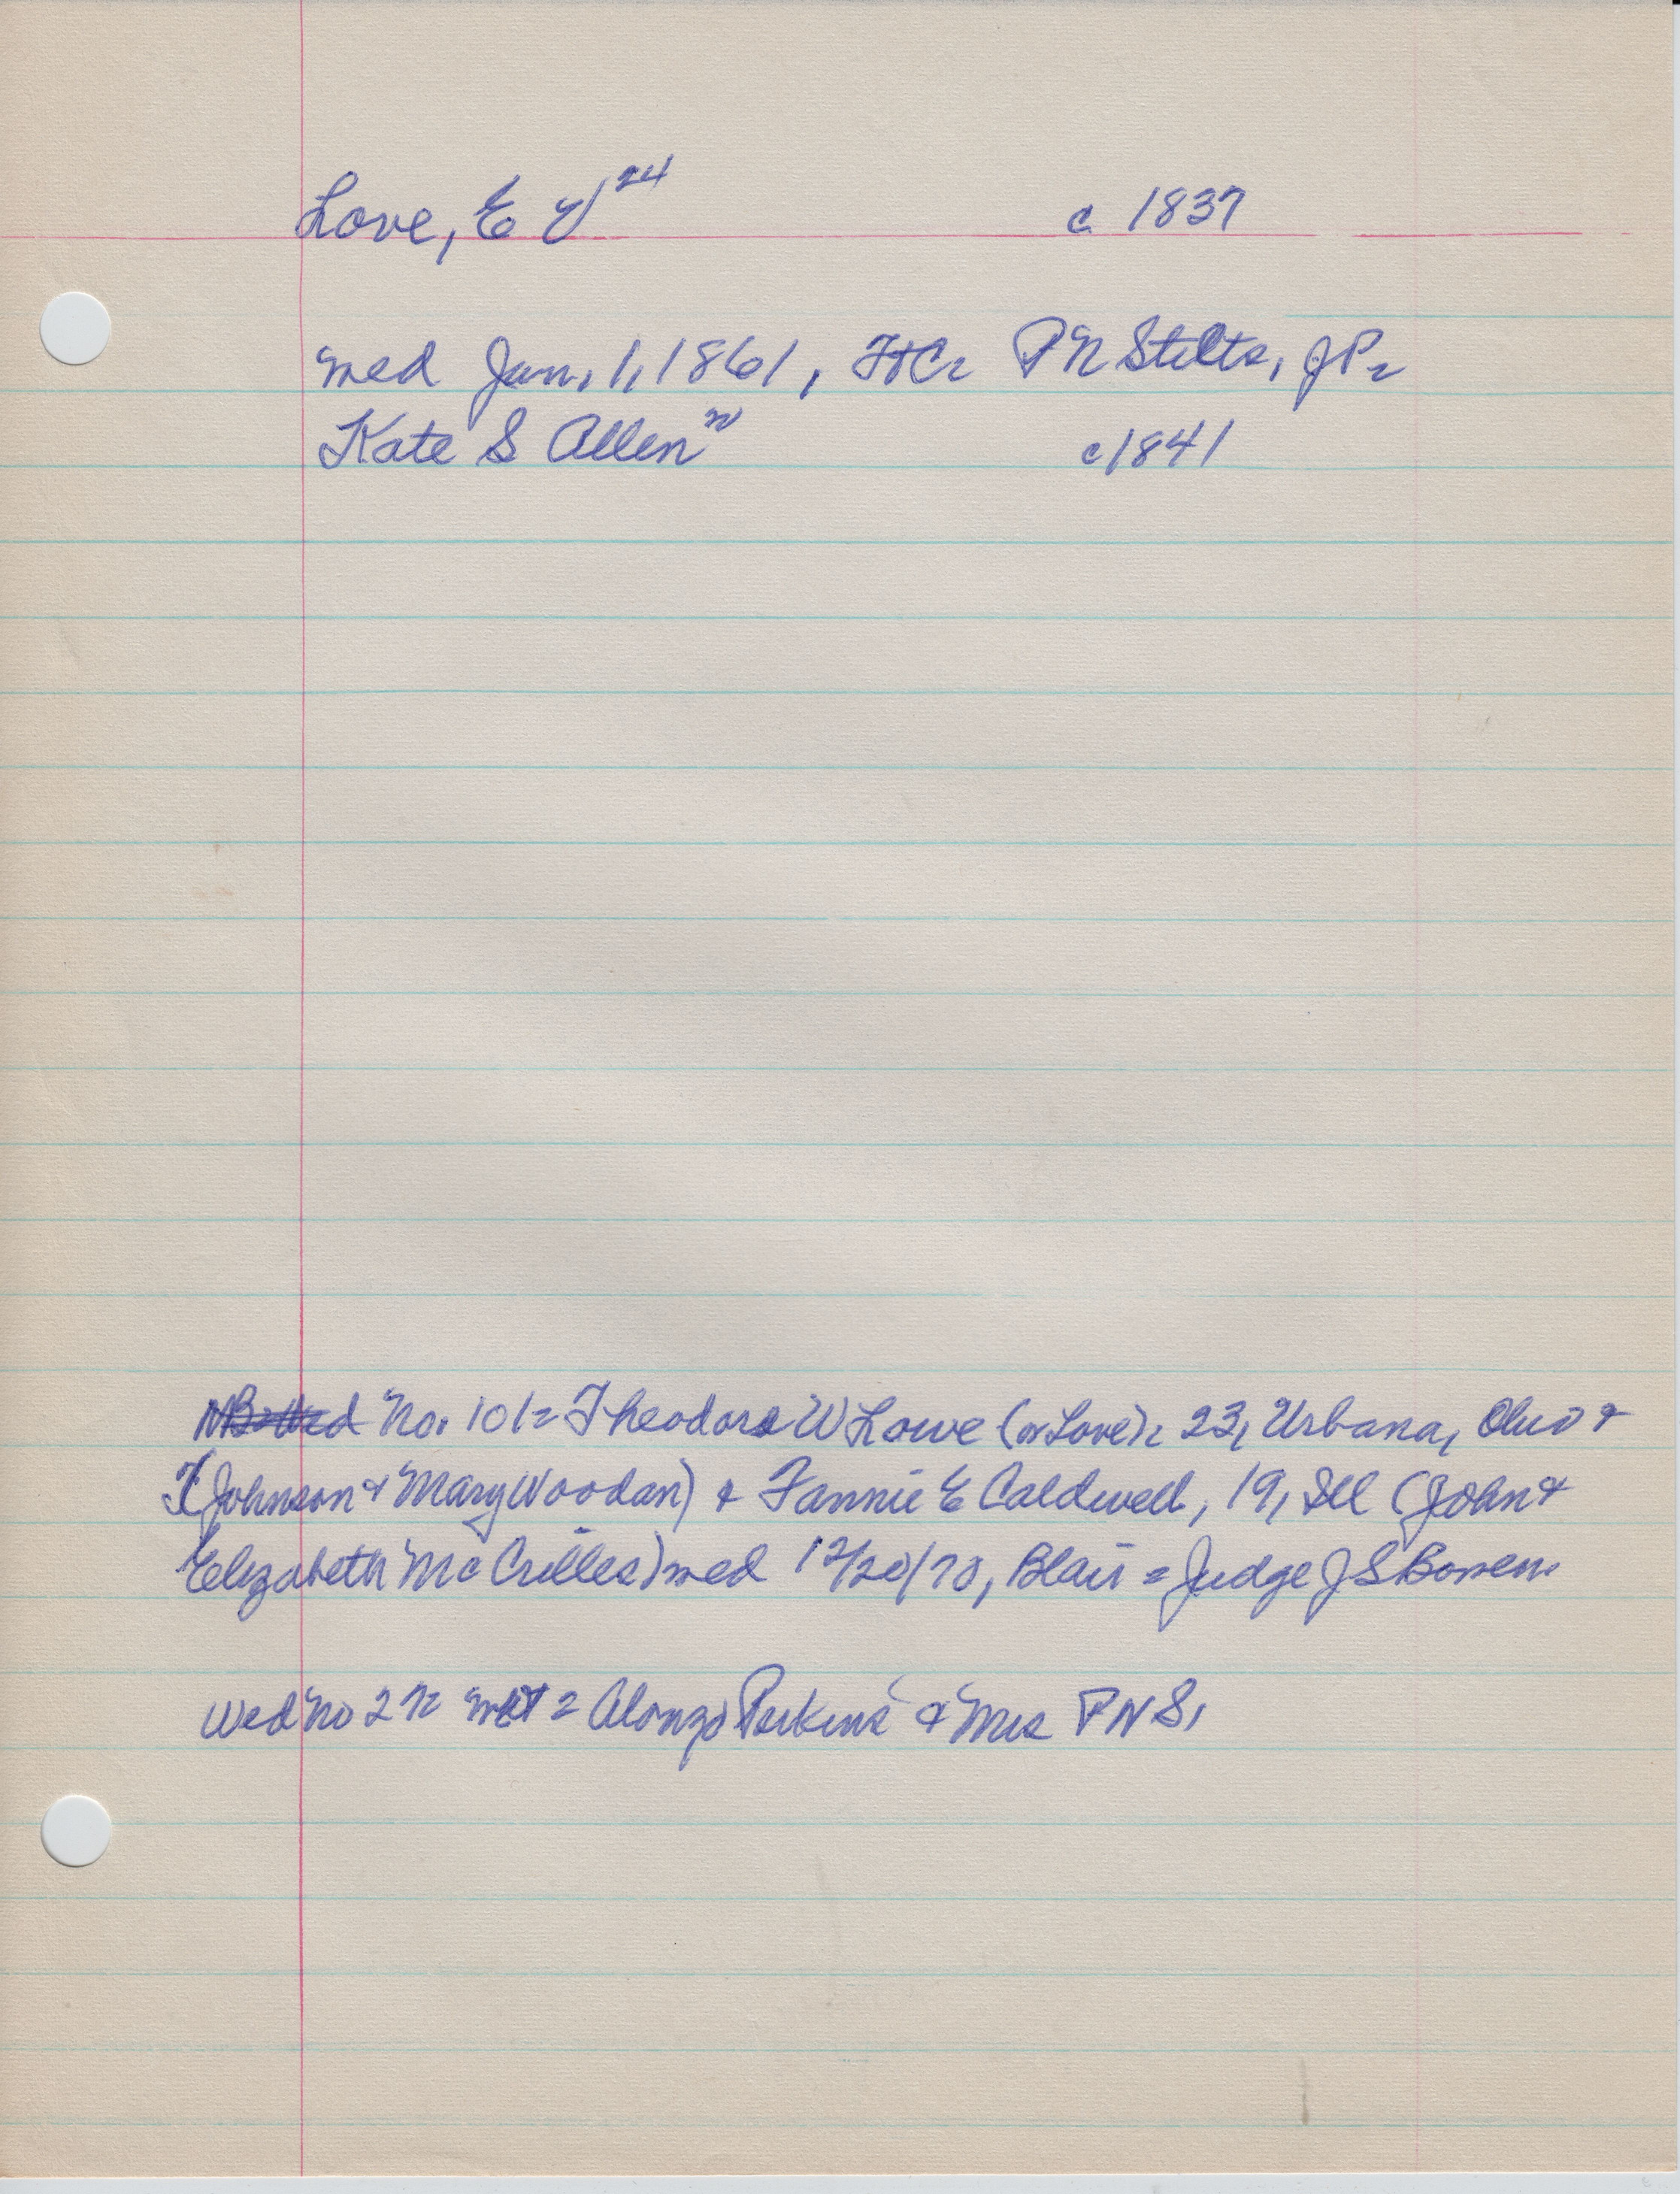 Love, E V 24 c 1837
wed Jan. 1, 1861, FtC: P N Stilts, JP:
Kate S Allen 20 c 1841
No. 101 = Theodore W Lowe (or Love): 23, Urbana, Ohio &
(Johnson & Mary Woodan) & Fannie E Caldwell, 19, Ill (John &
Elizabeth McCrilles) wed 12/20/70, Blair = Judge J S Bowen.
Wed No 22 wit = Alonzo Perkins & Mrs P N S.